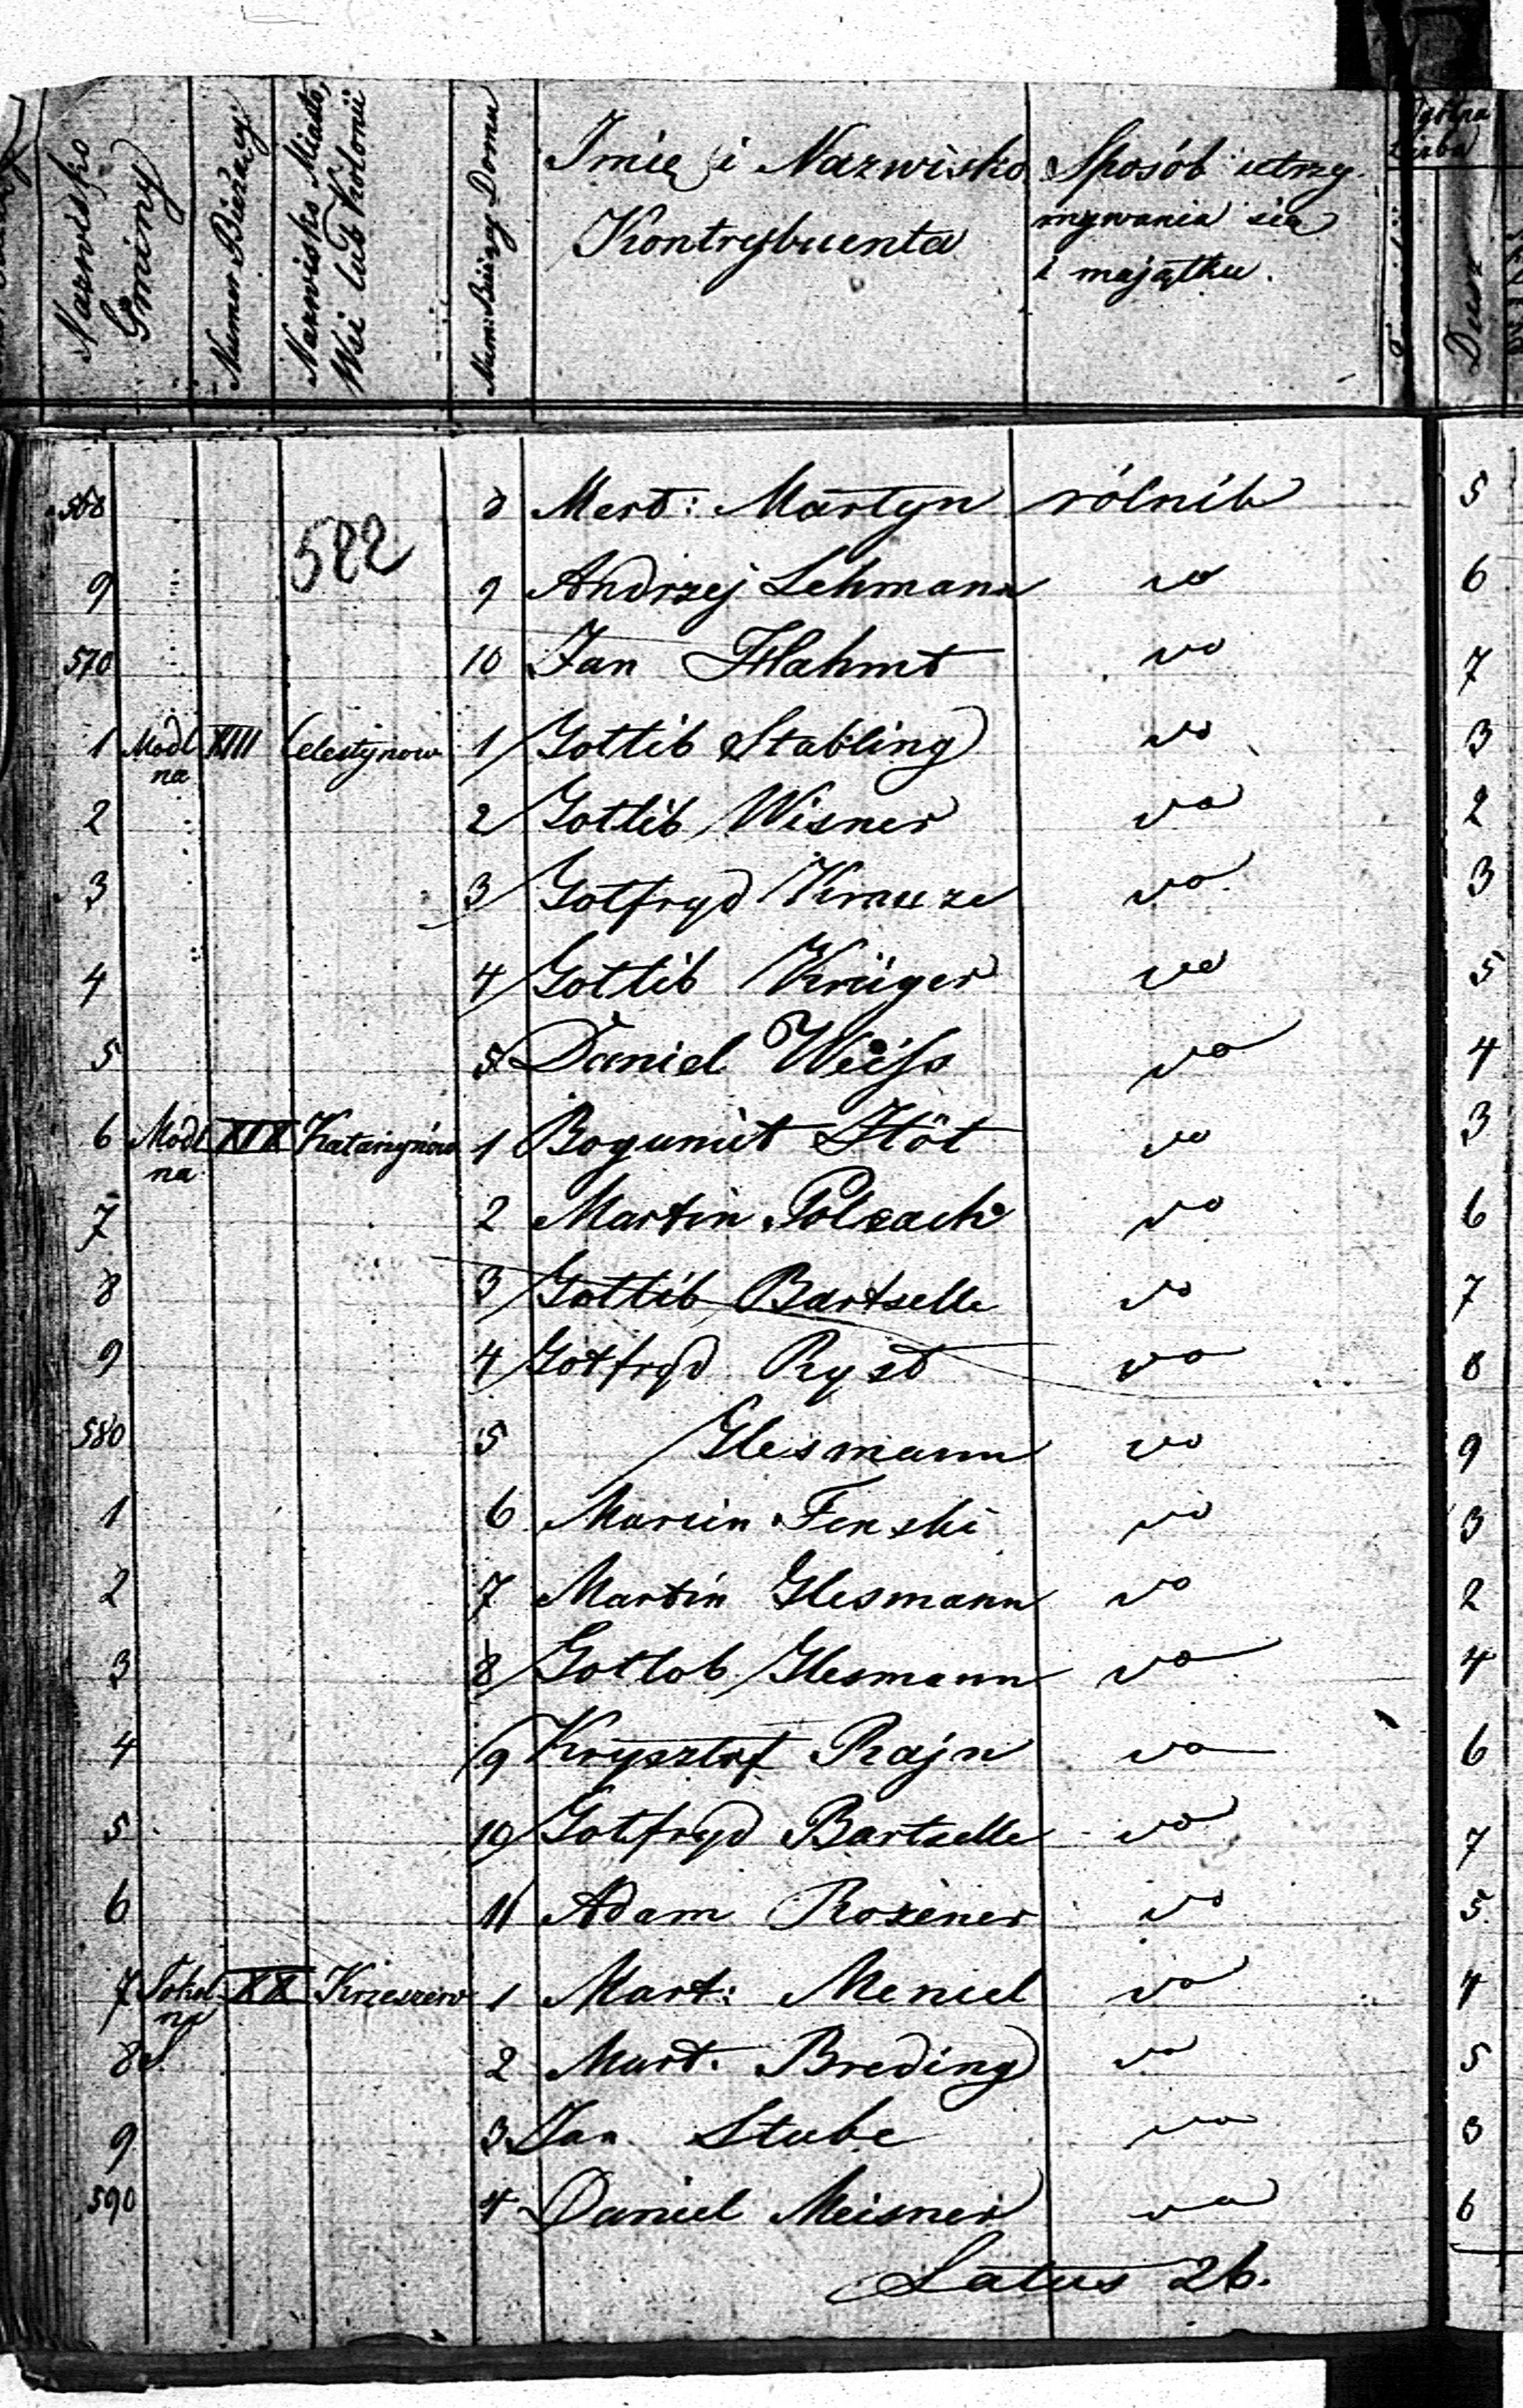 Nazwisko Gminy
Numer Bieżący
Nazwisko Miasto, Wsi lub Kolonii
Num: Bieżący Domu
Imię i Nazwisko Kontrybuenta
Sposób utrzymywania się i majątku.
Ogólna Liczba
Dusz
568 8 Mert: Martyn rólnik 5
522
9 9 Andrzej Lehmann vo 6
570 10 Jan Flahmt vo 7
1 Modlna XVIII Celestynow 1 Gottlib Stabling vo 3
2 2 Gottlib Wisner vo 2
3 3 Gotfryd Krauze vo 3
4 4 Gottlib Krüger vo 5
5 5 Daniel Weiss vo 4
6 Modlna XIX Katarzynów 1 Bogumił Höt vo 3
7 2 Martin Polzach vo 6
8 3 Gottlib Bartzelle vo 7
9 4 Gotfryd Ryst vo 8
580 5 Glesmann vo 9
1 6 Marcin Fenski vo 3
2 7 Martin Glesmann vo 2
3 8 Gotlob Glesmann vo 4
4 9 Krysztof Rajn vo 6
5 10 Gotfryd Bartzelle vo 7
6 11 Adam Rozener vo 5
7 XX Krzeszew 1 Mart: Meniel vo 4
8 2 Mart. Breding vo 5
9 3 Jan Stube vo 3
590 4 Daniel Meisner vo 6
Latus 26.